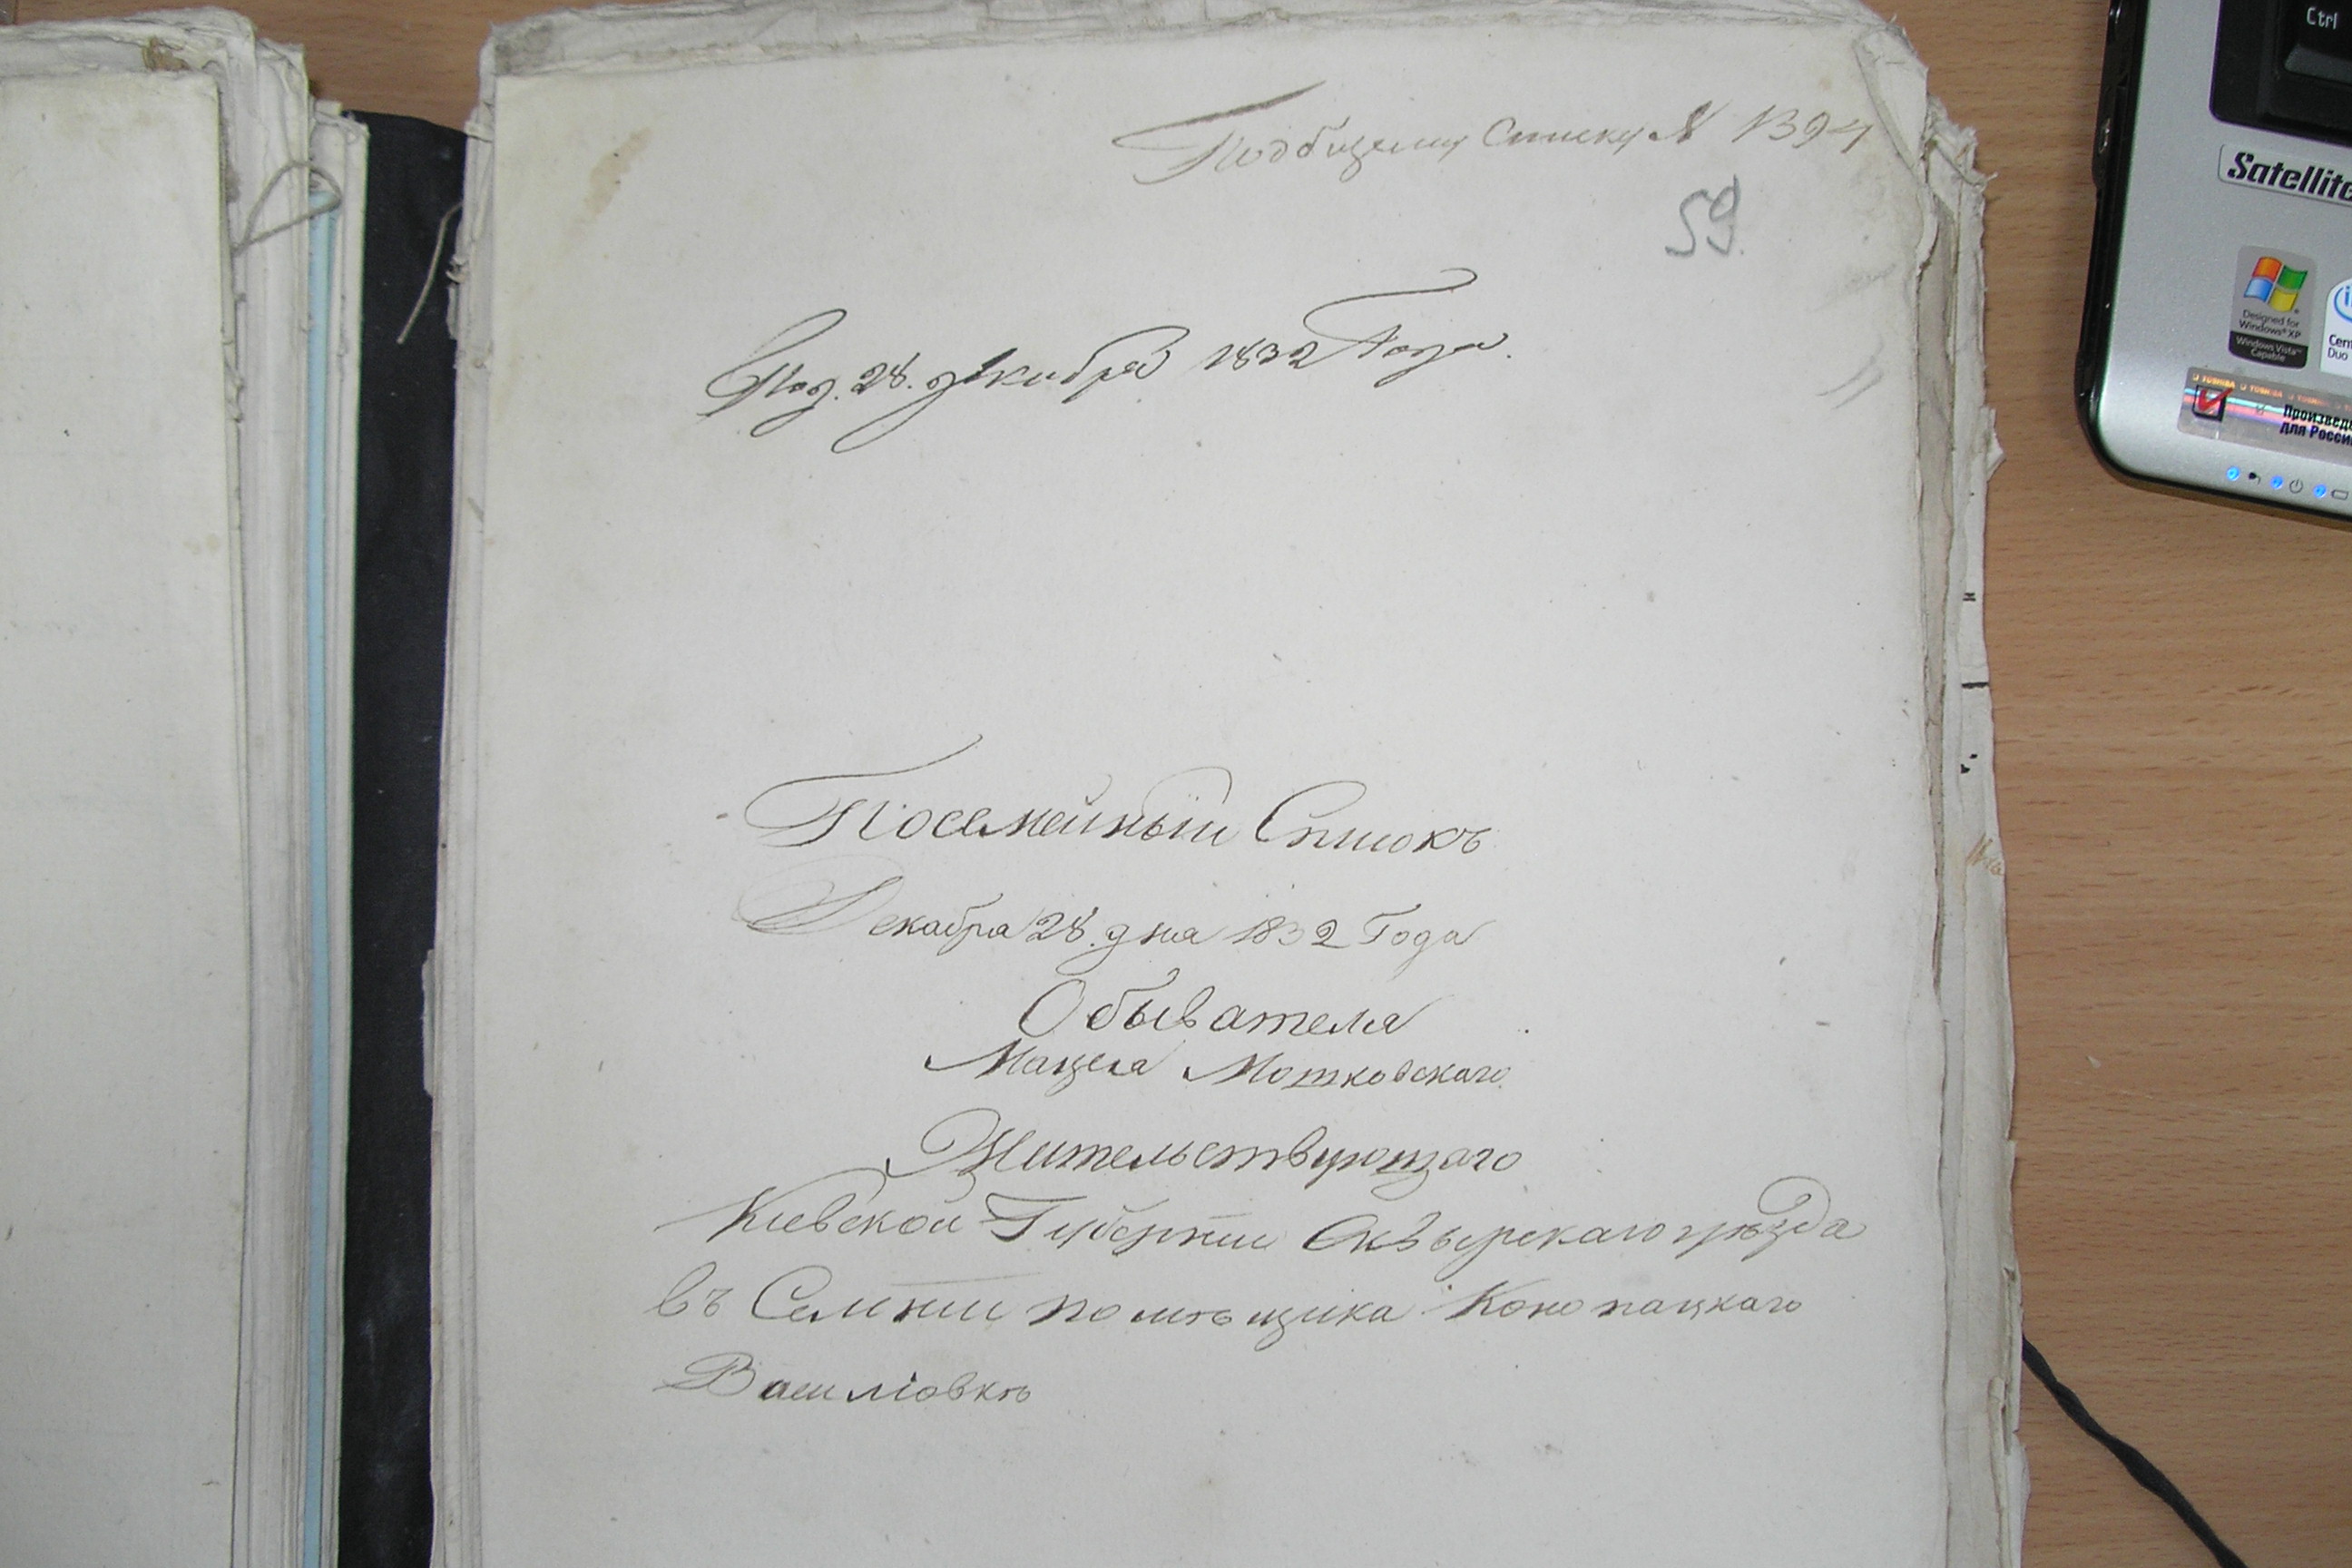 По общему Списку № 1394
59.
Под. 28. декабря 1832 Года.
Посемейный Списокъ
Декабра 28. дна 1832 Года
Обывателя
Мацея Мотковскаго
Жительствующаго
Кіевской Губерніи Сквырскаго уѣзда
въ Селѣніи помѣщика Конопацкаго
Василіовкѣ
Ctrl
Satellite
Designed for
Windows® XP
Windows Vista™
Capable
Duo
TOSHIBA TOSHIBA TOSHIBA
Произведе
для России